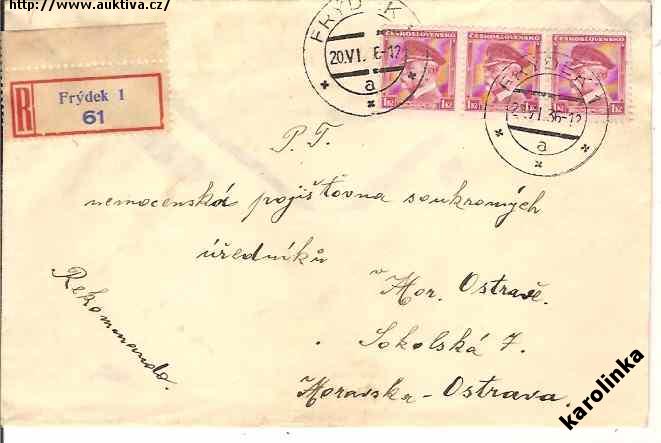 http://www.auktiva.cz/
R
Frýdek 1
61
FRÝDEK 1
20.VI. 6-12
a
ČESKOSLOVENSKO
1Kč
ČESKOSLOVENSKO
1Kč
ČESKOSLOVENSKO
1Kč
FRÝDEK 1
VI.36-12
a
P. T.
nemocenská pojišťovna soukromých
úředníků
v Mor. Ostravě.
Rekommando.
Sokolská 7.
Moravská-Ostrava.
karolinka